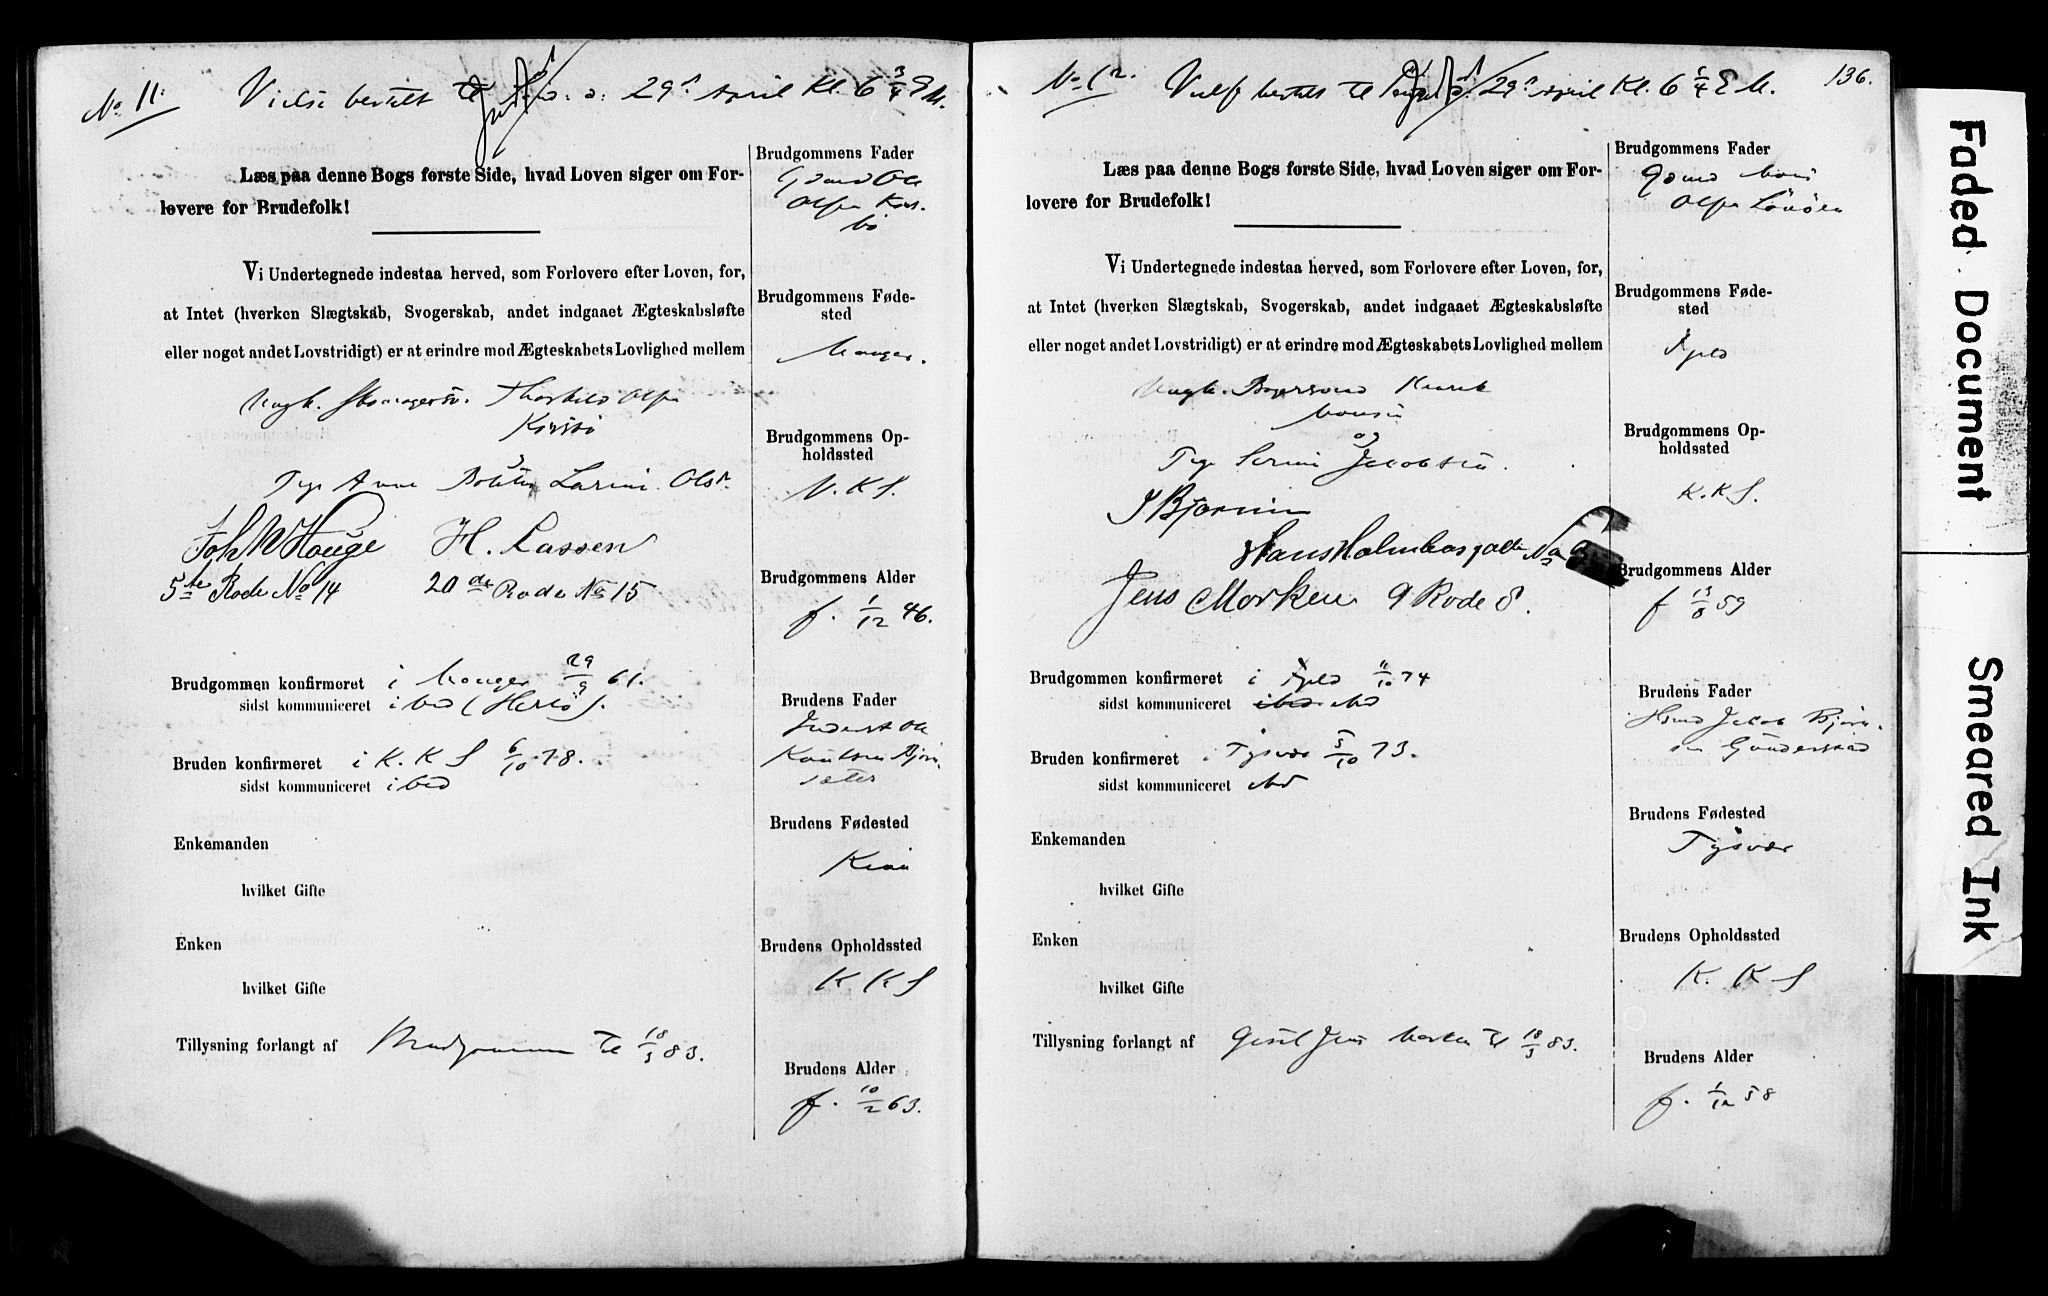 No 11.
Vielse bestilt til 29 April Kl. 6 3/4 E M.
Læs paa denne Bogs første Side, hvad Loven siger om For-
lovere for Brudefolk!
Vi Undertegnede indestaa herved, som Forlovere efter Loven, for,
at Intet (hverken Slægtskab, Svogerskab, andet indgaaet Ægteskabsløfte
eller noget andet Lovstridigt) er at erindre mod Ægteskabets Lovlighed mellem
Ungk. Thorkild Olsen
og
Pige Anne Larine Olsr.
Joh W Hauge H. Lassen
5te Rode No 14 20de Rode No 15
Brudgommen konfirmeret i Manger 29/9 61.
sidst kommuniceret ibid (Herlø).
Bruden konfirmeret i K. K S 6/10 78.
sidst kommuniceret ibid
Enkemanden
hvilket Gifte
Enken
hvilket Gifte
Tillysning forlangt af Brudgommen til 18/3 83.
Brudgommens Fader
Gdmd Ole
Olsen
Brudgommens Føde-
sted
Manger.
Brudgommens Op-
holdssted
N. K S.
Brudgommens Alder
f. 1/12 46.
Brudens Fader
Inderst Ole
Knutsen Bjørn-
sæter
Brudens Fødested
Kinn
Brudens Opholdssted
K K S
Brudens Alder
f. 10/2 63.
No 12.
bestilt til 29 April Kl. 6 1/4 E M.
136.
Læs paa denne Bogs første Side, hvad Loven siger om For-
lovere for Brudefolk!
Vi Undertegnede indestaa herved, som Forlovere efter Loven, for,
at Intet (hverken Slægtskab, Svogerskab, andet indgaaet Ægteskabsløfte
eller noget andet Lovstridigt) er at erindre mod Ægteskabets Lovlighed mellem
Ungk. Henrik
Monsen
og
Pige Serine Jacobsen.
Hans Holmboesgade No
Jens Morken 9 Rode 8.
Brudgommen konfirmeret i 11/10 74
sidst kommuniceret ibid
Bruden konfirmeret i Tysvær 5/10 73.
sidst kommuniceret
Enkemanden
hvilket Gifte
Enken
hvilket Gifte
Tillysning forlangt af Gesel Jens Morken til 18/3 83.
Brudgommens Fader
Gdmd Mons
Olsen
Brudgommens Føde-
sted
Brudgommens Op-
holdssted
K. K S.
Brudgommens Alder
f 13/8 59
Brudens Fader
Hsmd Jacob Bjørn-
sen
Brudens Fødested
Tysvær
Brudens Opholdssted
K. K S
Brudens Alder
f. 1/12 58
Faded Document
Smeared Ink